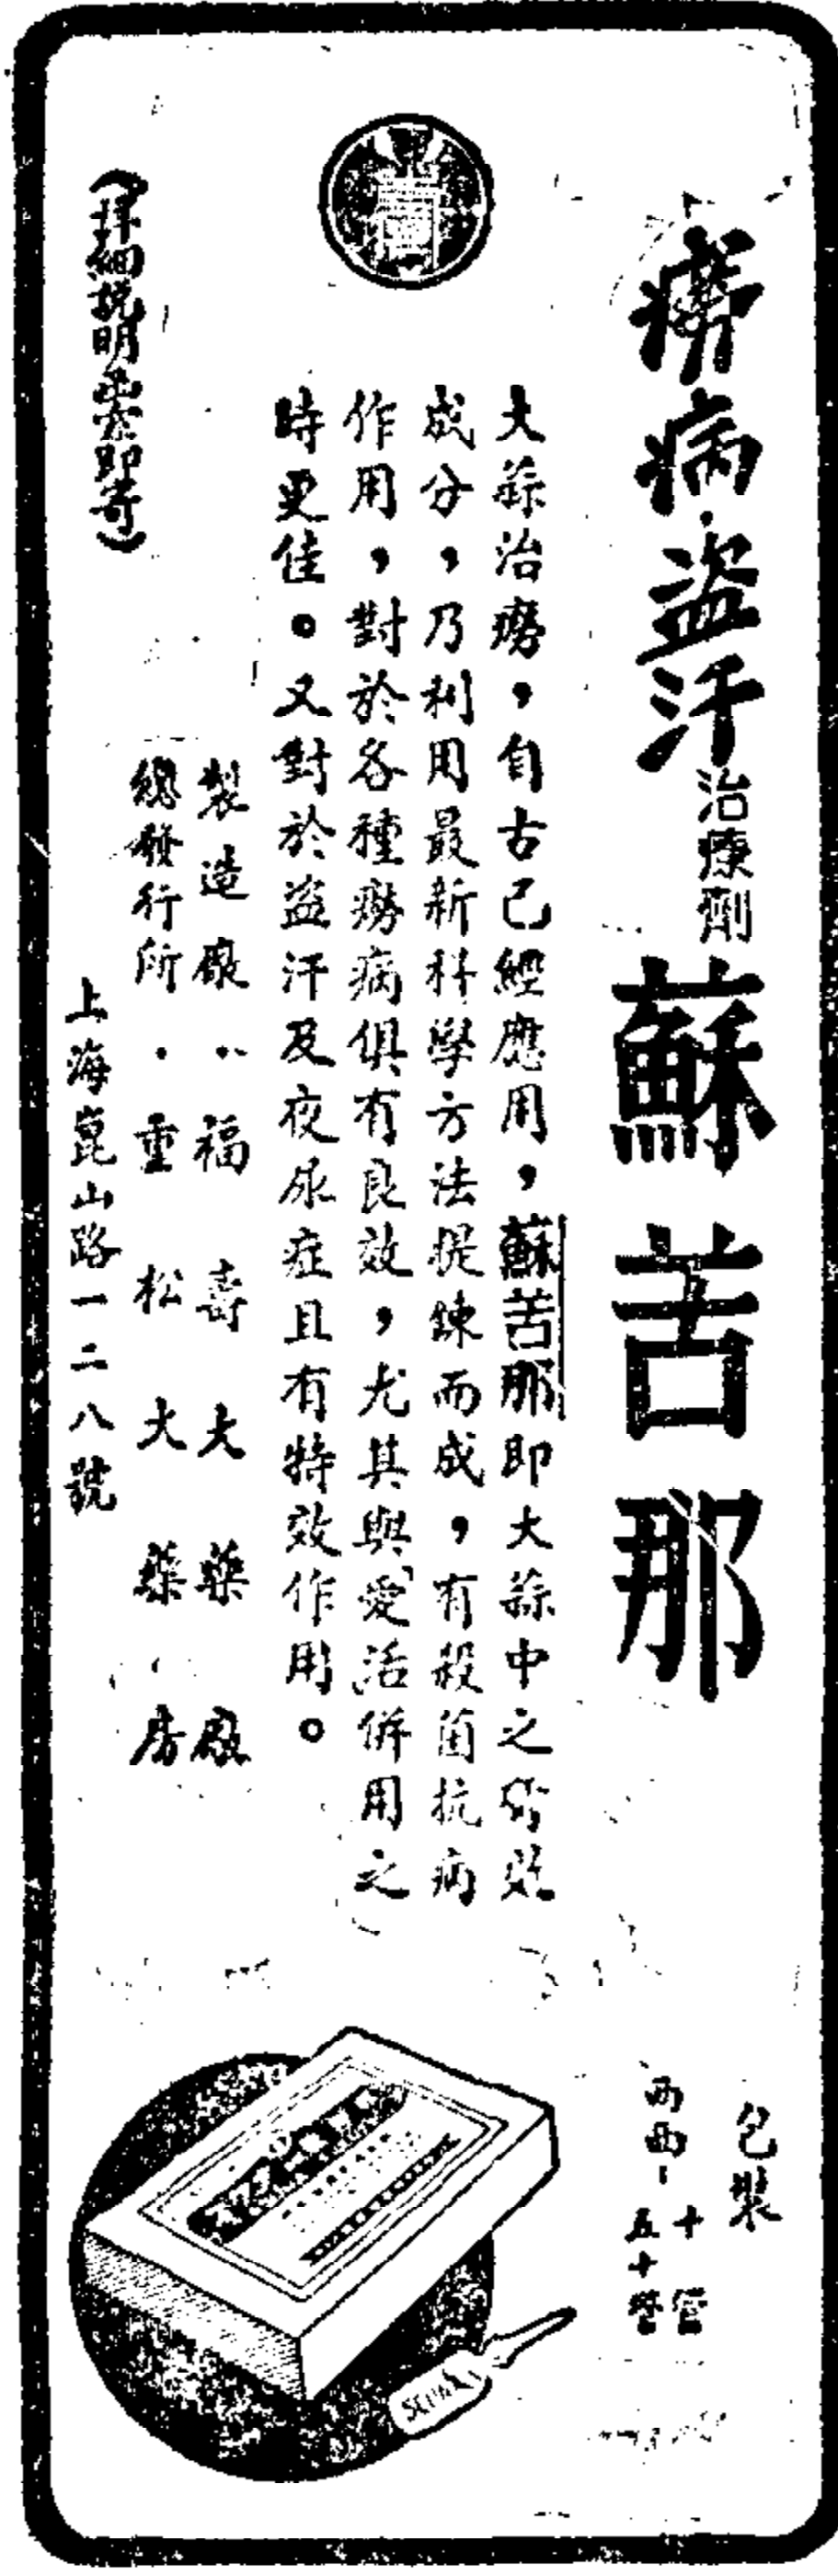 癆病·盜汗治療劑 蘇苦那
大蒜治癆，自古已經應用，蘇苦那即大蒜中之有效
成分，乃利用最新科學方法提鍊而成，有殺菌抗病
作用，對於各種癆病俱有良效，尤其與愛活併用之
時更佳。又對於盜汗及夜尿症且有特效作用。
製造廠：福壽大藥廠
總發行所·重松大藥房
上海崑山路一二八號
（詳細說明函索即寄）
包裝
西西
十管
五十管